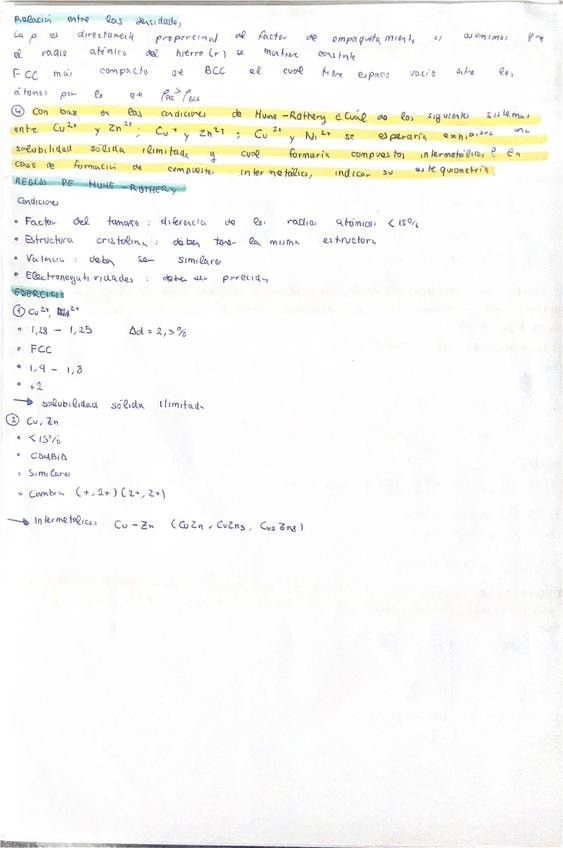 Relación entre las densidades
La ρ es directamente proporcional al factor de empaquetamiento si asumimos que
el radio atómico del hierro (r) se mantiene constante
FCC más compacto que BCC el cual tiene espacio vacío entre los
átomos por lo que ρFCC > ρBCC
④ Con base en las condiciones de Hume-Rothery ¿Cuál de los siguientes sistemas
entre Cu²⁺ y Zn²⁺; Cu⁺ y Zn²⁺; Cu²⁺ y Ni²⁺ se esperaría exhibiera una
solubilidad sólida ilimitada y cual formaria compuestos intermetálicos? En
caso de formación de compuesto intermetálico, indicar su estequiometría.
REGLAS DE HUME-ROTHERY
Condiciones
• Factor del tamaño: diferencia de los radios atómicos < 15%
• Estructura cristalina: deben tener la misma estructura
• Valencia: deben ser similares
• Electronegatividades: deben ser parecidas
EJERCICIO
① Cu²⁺, Ni²⁺
• 1,28 - 1,25 Δd = 2,3%
• FCC
• 1,9 - 1,8
• +2
→ solubilidad sólida ilimitada
② Cu, Zn
• <15%
• CAMBIA
• Similares
• Cambia (+, 2+) (2+, 2+)
→ Intermetálicos Cu-Zn (CuZn, CuZn3, Cu5Zn8)